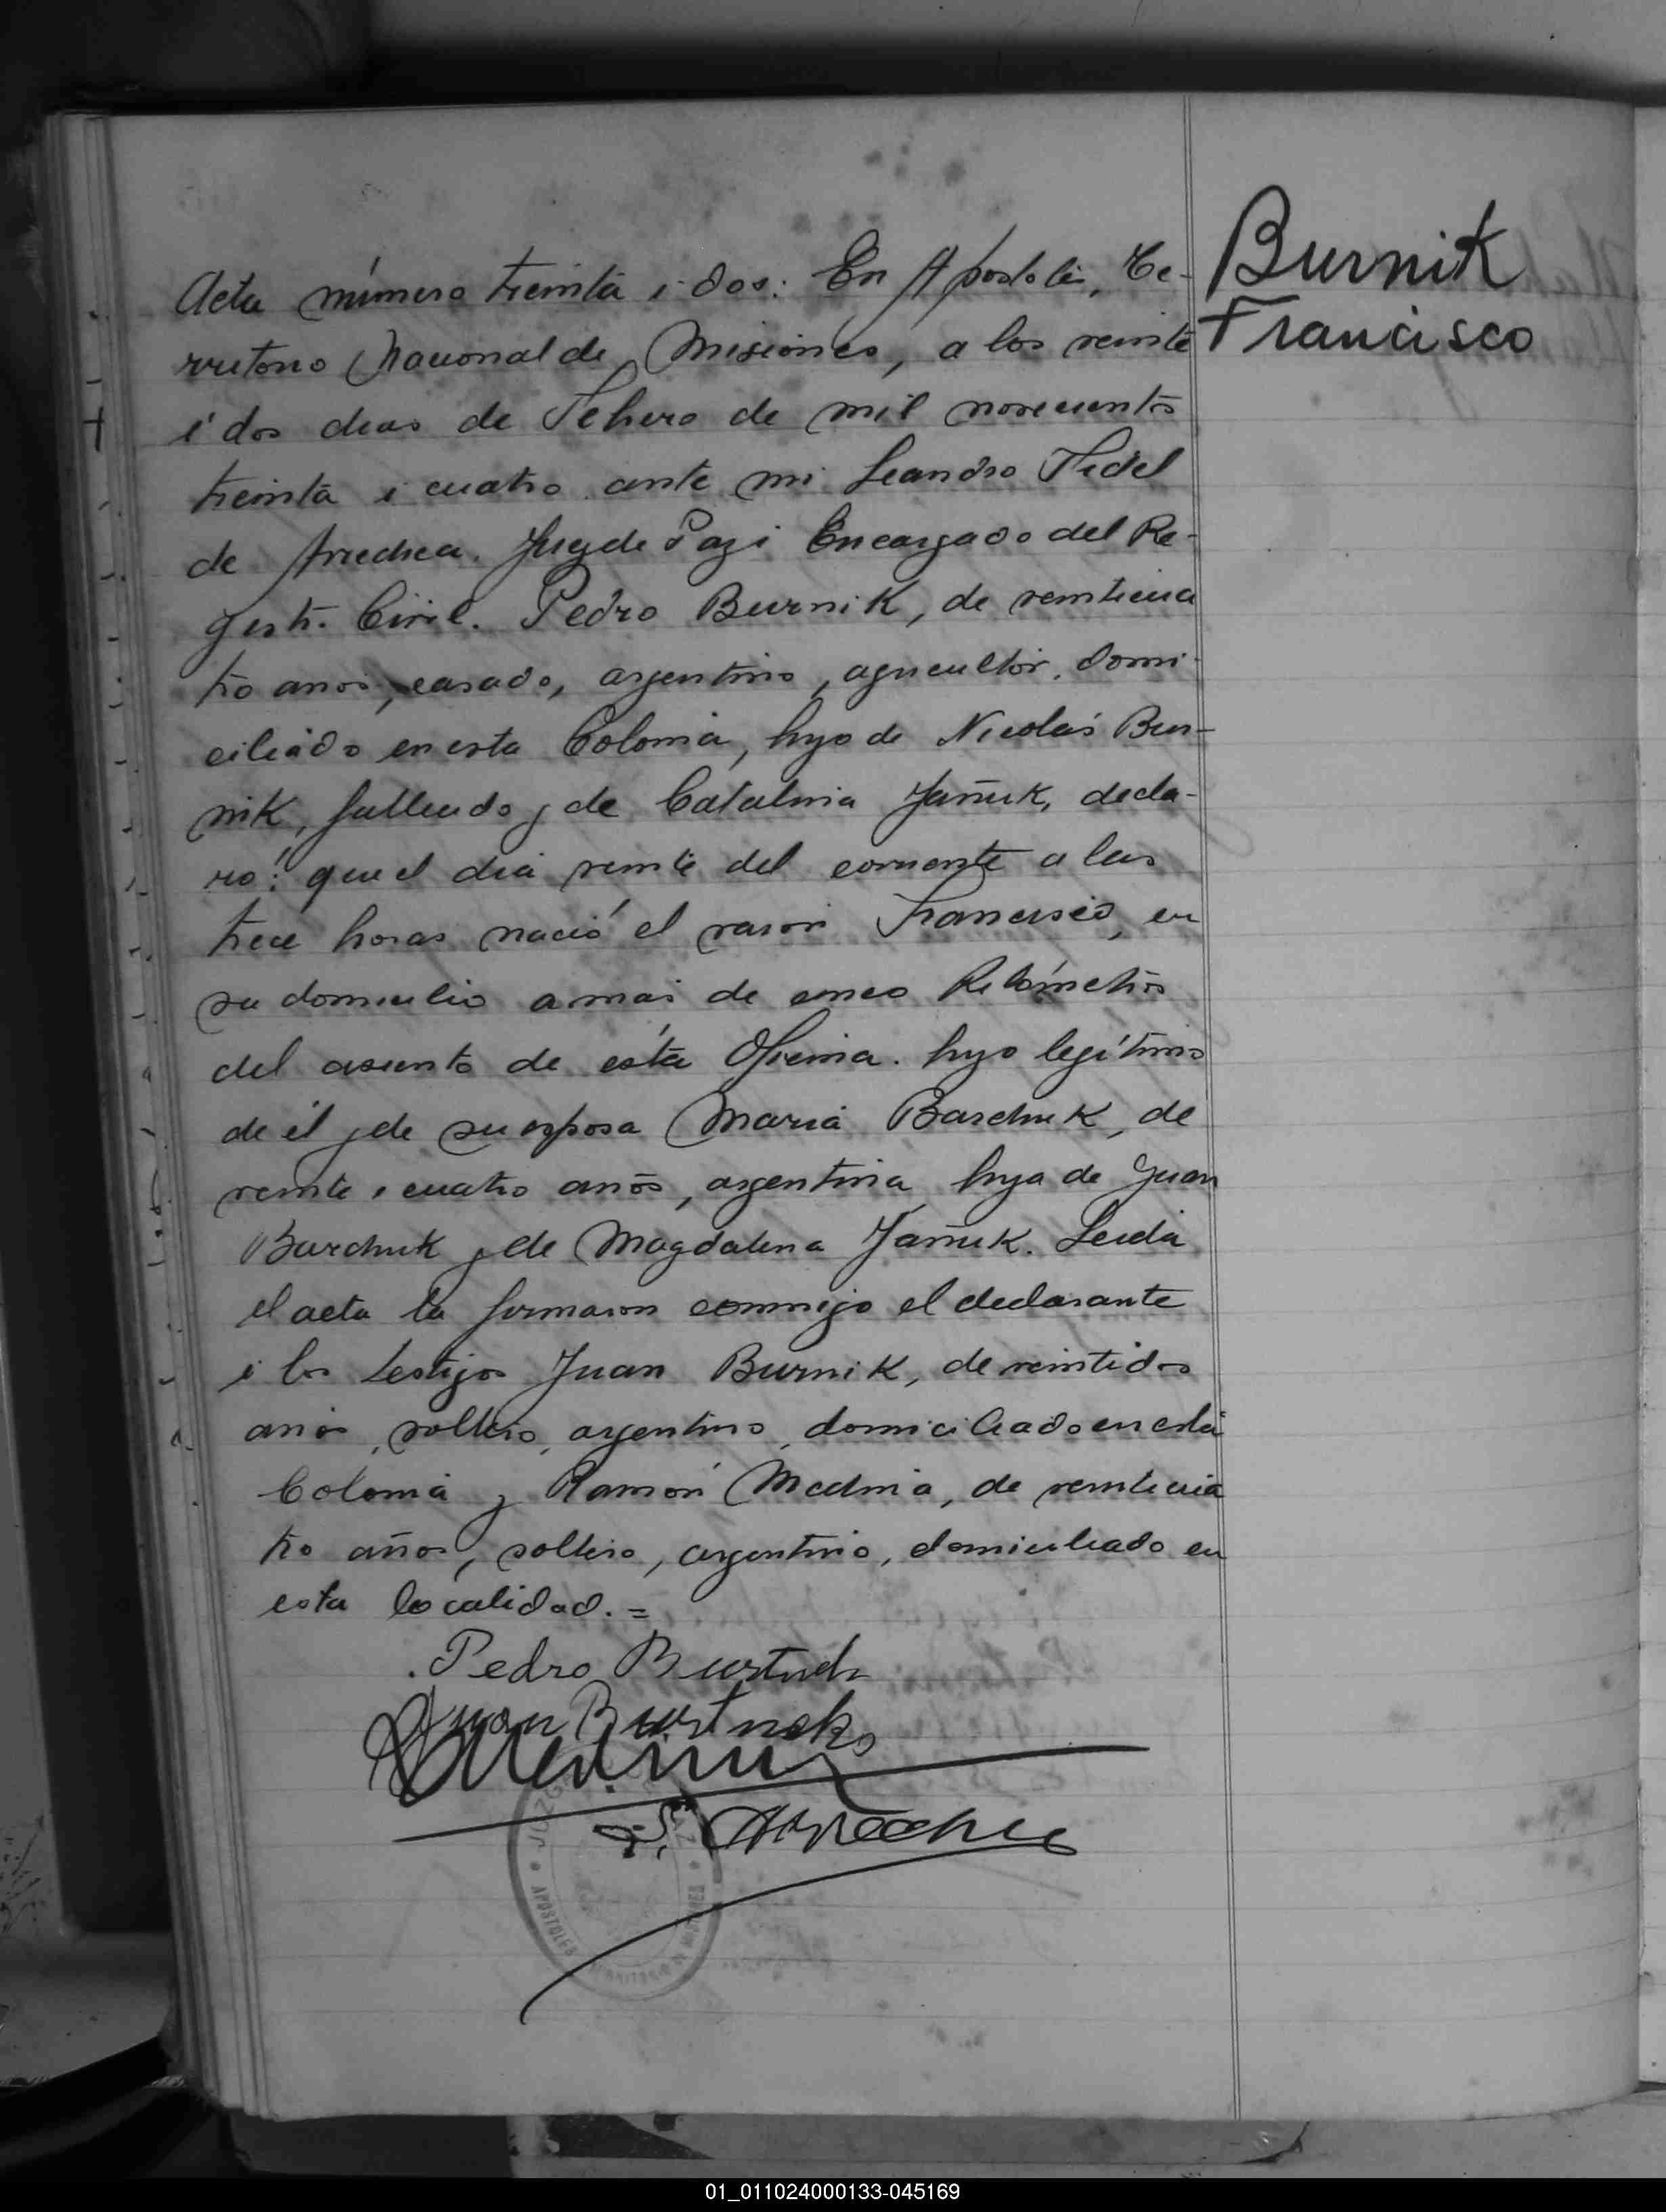 Burnik
Francisco
Acta número treinta i dos: En Apostoles, Te-
rritorio Nacional de Misiones, a los veinte
i dos dias de Febrero de mil novecientos
treinta i cuatro ante mi Leandro Fidel
de Arrechea. Juez de Paz i Encargado del Re-
gistr. Civil. Pedro Burnik, de veinticua
tro años, casado, argentino, agricultor, domi-
ciliado en esta Colonia, hijo de Nicolás Bur-
nik, fallecido y de Catalina Jañuk, decla-
ró: que el dia veinte del corriente a las
trece horas nació el varon Francisco, en
su domicilio a mas de cinco Kilómetros
del asiento de esta Oficina. hijo legítimo
de él y de su esposa Maria Barchuk, de
veinte i cuatro años, argentina, hija de Juan
Barchuk y de Magdalena Jañuk. Leida
el acta la firmaron conmigo el declarante
i los testigos Juan Burnik, de veintidos
años, soltero, argentino, domiciliado en esta
Colonia y Ramón Medina, de veinticua
tro años, soltero, argentino, domiciliado en
esta localidad. =
Pedro
Juan
Medina
Arrechea
APOSTOLES
01_011024000133-045169